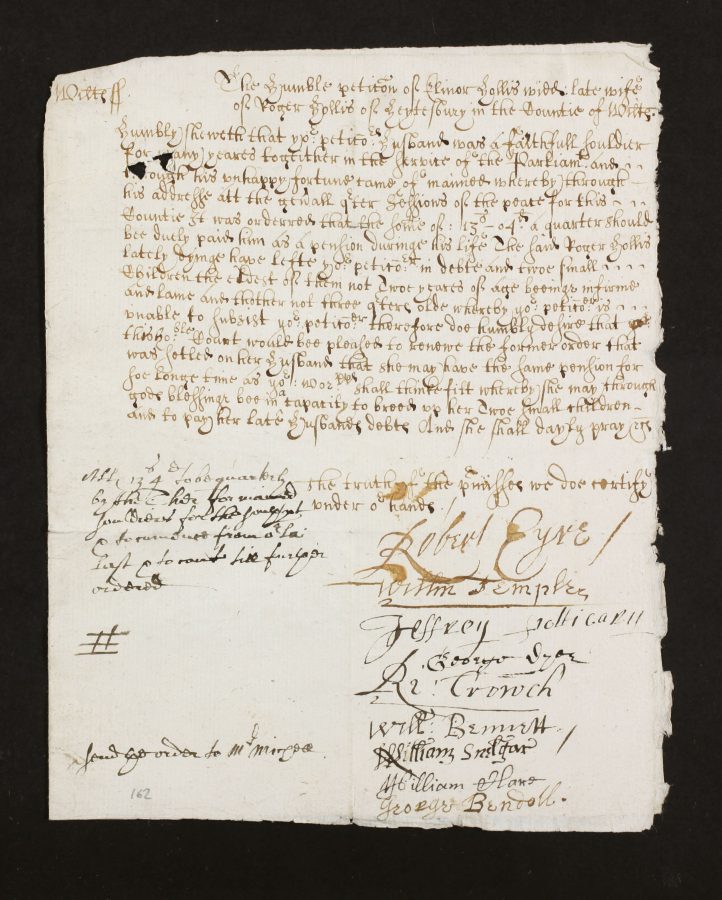 Wiltss
The humble peticon of Elinor Hollis widd: late wife
of Roger Hollis of Heytesbury in the Countie of Wilts
Humbly sheweth that yor: petitor: husband was a faithfull souldier
for many yeares togeither in the service of the Parliamt: and
through his unhappy fortune came of maimed whereby through
his addresse att the genrall qter Sessions of the peace for this
Countie It was orderred that the some of: 13s - 04d: a quarter should
bee duely paid him as a pension duringe his life The said Roger Hollis
lately dyinge have lefte yor: petitor: in debte and twoe small
Children the eldest of them not Twoe yeares of age beeinge infirme
and lame and thother not three qters olde whereby yor: petitor: is
unable to subsist yor: petitor: therefore doe humbly desire that
this hoble: Court would bee pleased to renewe the former order that
was setled on her husband that she may have the same pension for
soe longe time as yor: worpps shall thinke fitt whereby she may through
gods blessinge bee in a capacity to breed up her Twoe small children
and to pay her late husbands debts And she shall dayly pray &c
the truth of the pmisses we doe certify
under or hands
13s 4d to be quarterly
by the Threr for maimed
souldiers for the
& to comence from
last & to cont till further
ordered
Robert Eyre
Willm Temple
Jeffrey Potticary
George Dyer
Ri: Crowch
Will: Bennett
William Snelgar
William Clare
George Bendoll.
send the order to Mr
162